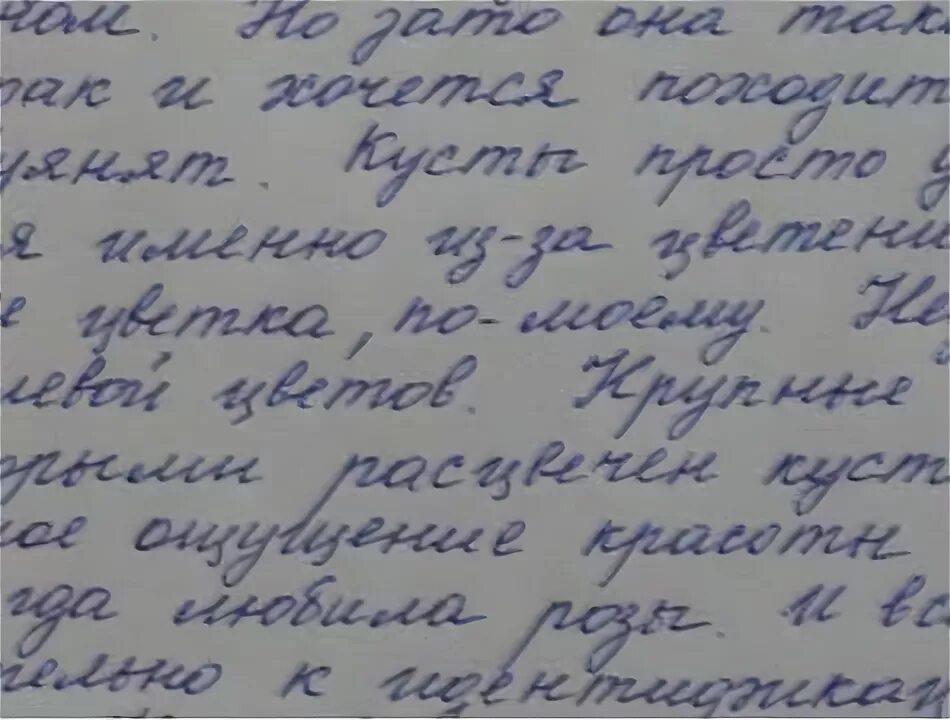 ром. Но зато она так
так и хочется походит
уянят. Кусты просто у
я именно из-за цветени
е цветка, по-моему. Не
левой цветов. Крупные
орыми расцвечен куст
ное ощущение красоты
гда любила розы. И вс
тельно к идентификац